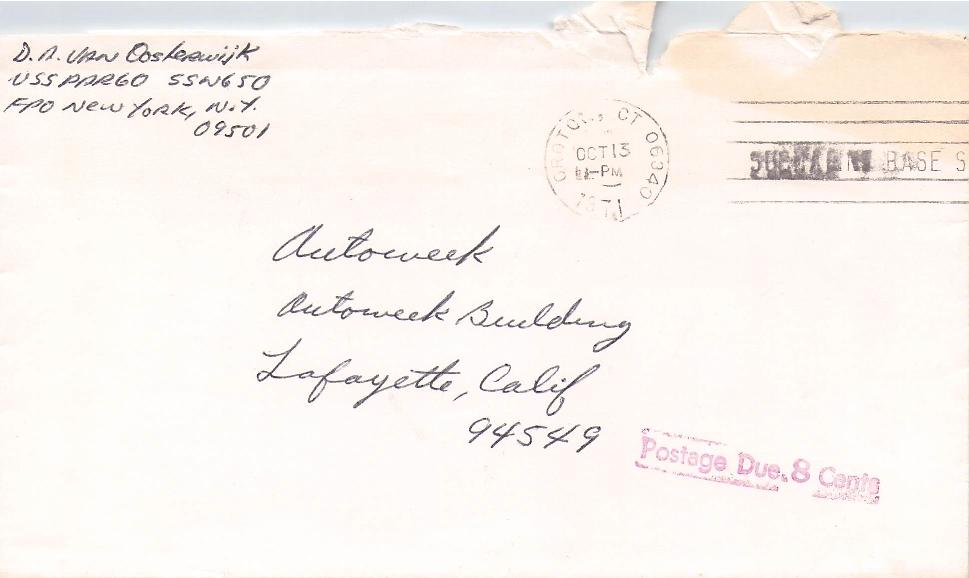 D.A. VAN Oosterwijk
USS PARGO SSN650
FPO NEW YORK, N.Y.
09501
GROTON, CT 06340
OCT 13
PM
1971
SUBMARINE BASE S
Autoweek
Autoweek Building
Lafayette, Calif
94549
Postage Due 8 Cents